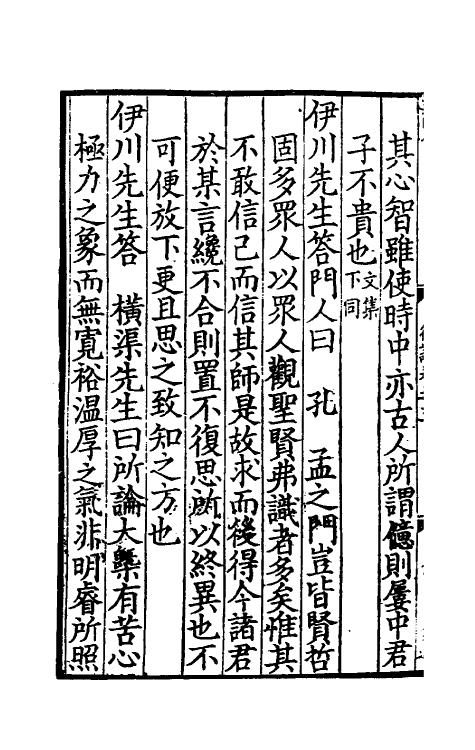 其心智雖使時中亦古人所謂億則屢中君
子不貴也文集下同
伊川先生答門人曰 孔 孟之門豈皆賢哲
固多眾人以眾人觀聖賢弗識者多矣惟其
不敢信己而信其師是故求而後得今諸君
於某言纔不合則置不復思所以終異也不
可便放下更且思之致知之方也
伊川先生答 橫渠先生曰所論大槩有苦心
極力之象而無寬裕溫厚之氣非明睿所照